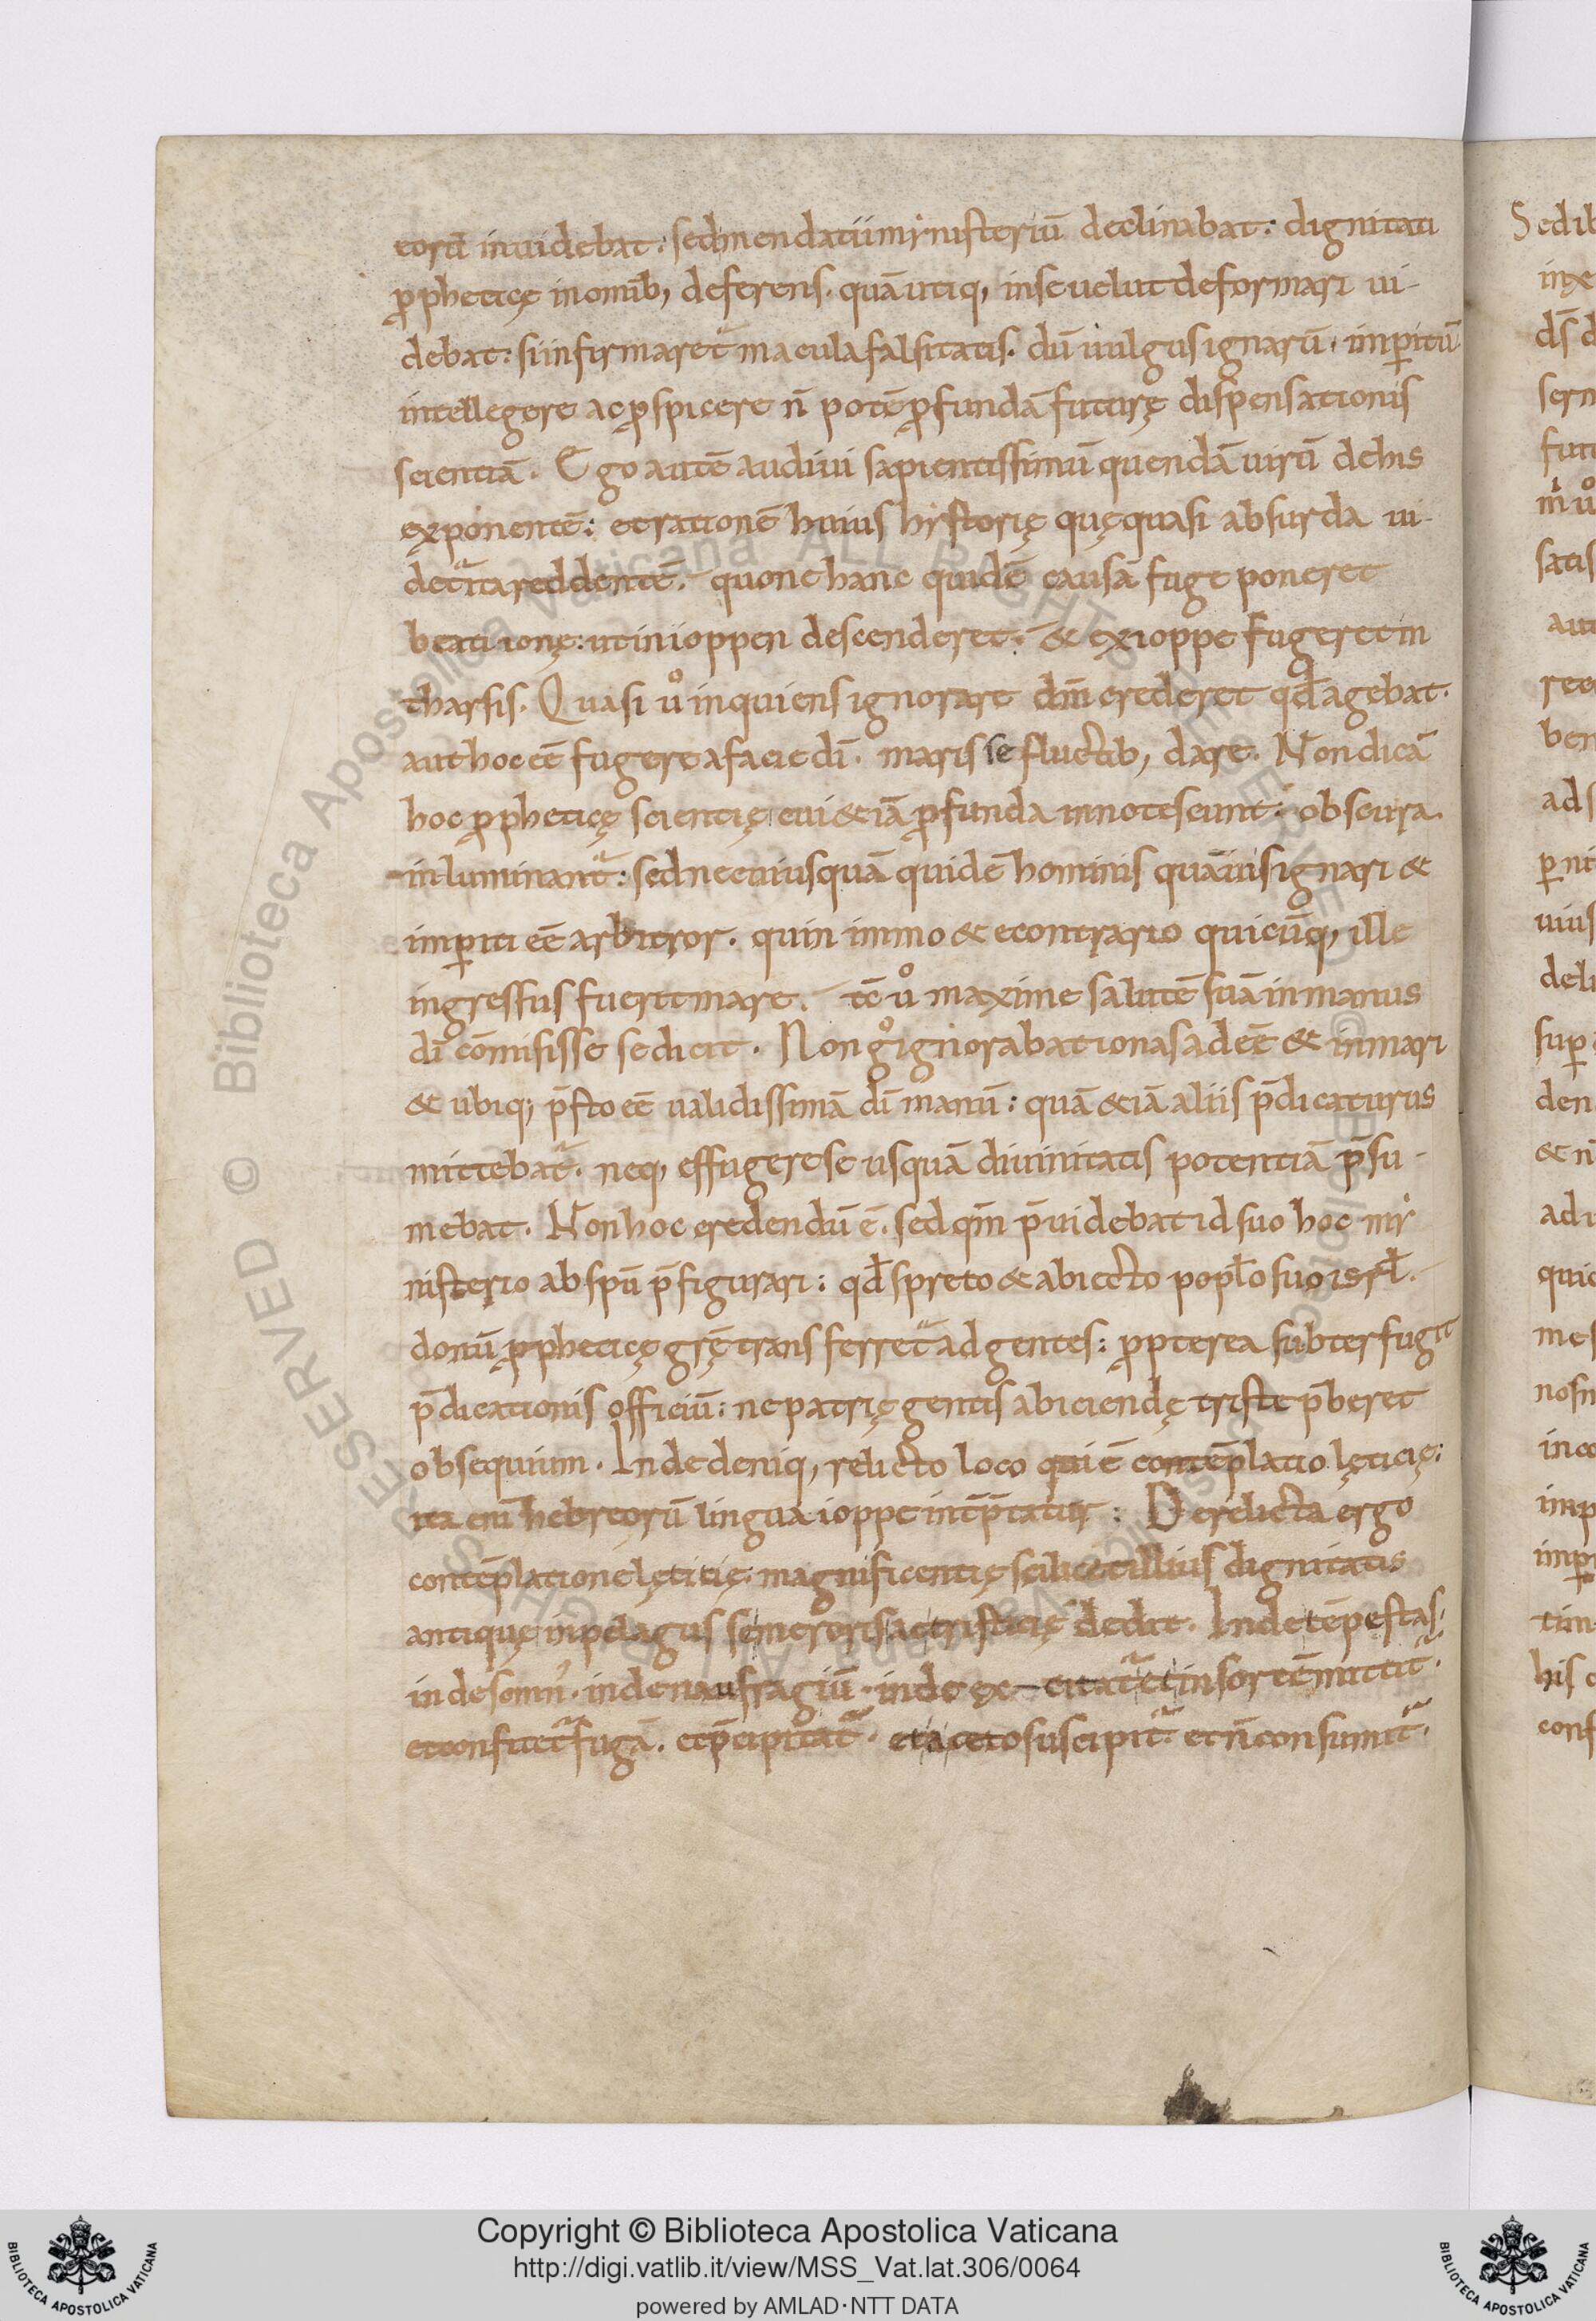 eorū inuidebat. sed mendatii mẏnisteriū declinabat: dignitati
p̱pheticę in omīb; deferens. quā utiq; in se uelut deformari ui-
debat: si infirmaret̃ macula falsitatis. dū uulgus ignarū. imꝑitū
intellegere ac p̱spicere ñ potē p̱fundā futurę dispensationis
scientiā. Ego autē audiui sapientissimū quendā uirū de his
exponentē: et rationē huius hystorię quę quasi absurda ui-
det̃ ita reddentē. quo ne hanc quidē causā fuge poneret
beati ionę: ut in ioppen descenderet. & ex ioppe fugeret in
tharsis. Quasi uͦ inquiens ignorare dn̄m crederet qd̄ agebat.
aut hoc eē fugere a facie dī. maris se fluctib; dare. Non dicā
hoc p̱pheticę scientię cui &iā p̱funda innotescunt: obscura
inluminant̃: sed nec cuiusquā quidē hominis quāuis ignari &
imꝑiti eē arbitror. quin immo & econtrario quicūq; ille
ingressus fuerit mare. tē uͦ maxime salutē suā in manus
dī cōmisisse se dicit. Non gͦ ignorabat ionas adeē & in mari
& ubiq; p̄sto eē ualidissimā dī manū: quā &iā aliis p̄dicaturus
mittebat̃. neq; effugere se usquā diuinitatis potentiā p̄su-
mebat. Non hoc credendū ē. sed qm̄ p̄uidebat id suo hoc mẏ
nisterio ab spū p̄figurari: qd̄ spreto & abiecto popło suo isrł.
donū p̱pheticę gr̄ę transferret̃ ad gentes: p̱pterea subterfugit
p̄dicationis officiū: ne patrię gentis abiciendę triste p̄beret
obsequium. Inde deniq; relicto loco qui ē contēplatio lęticię:
ita enī hebreorū lingua ioppe int̄p̄tatur: Derelicta ergo
contēplatione lętitię: magnificentię scilic& illius dignitatis
antiquę in pelagus se meroris ac tristicię dedit. Inde tēpestas.
inde somn̉. inde naufragiū. inde ex-citat̃ et in sortē mittit̃.
et confitet̃ fugā. et p̄cipitat̃. et a ceto suscipit̃. et ñ consumit̃.
Copyright © Biblioteca Apostolica Vaticana
http://digi.vatlib.it/view/MSS_Vat.lat.306/0064
powered by AMLAD·NTT DATA